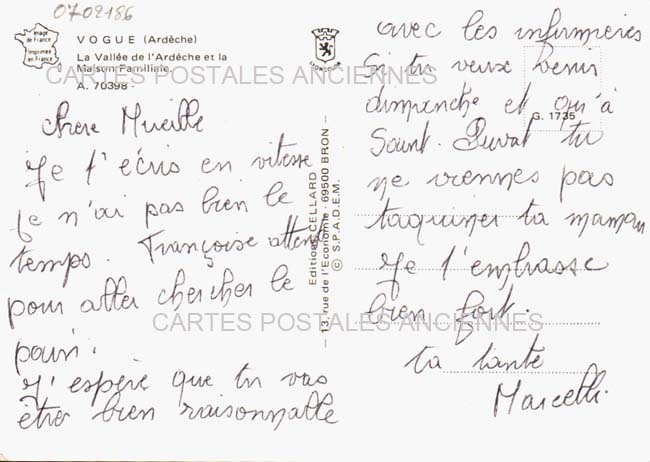 0702186
Image
de France
Imprimée
en France
VOGUE (Ardèche)
La Vallée de l'Ardèche et la
Maison Familiale
A. 70398
CARTES POSTALES ANCIENNES
chere Mireille
Je t'écris en vitesse
Je n'ai pas bien le
temps. Françoise attend
pour aller chercher le
pain.
J'espère que tu vas
être bien raisonnable
Editions CELLARD
13, rue de l'Economie - 69500 BRON
© S.P.A.D.E.M.
avec les infirmieres
Si tu veux venir
dimanche et qu'à
G. 1735
Saint. tu
ne viennes pas
taquiner ta maman
Je t'embrasse
bien fort.
CARTES POSTALES ANCIENNES
ta tante
Marcelle.